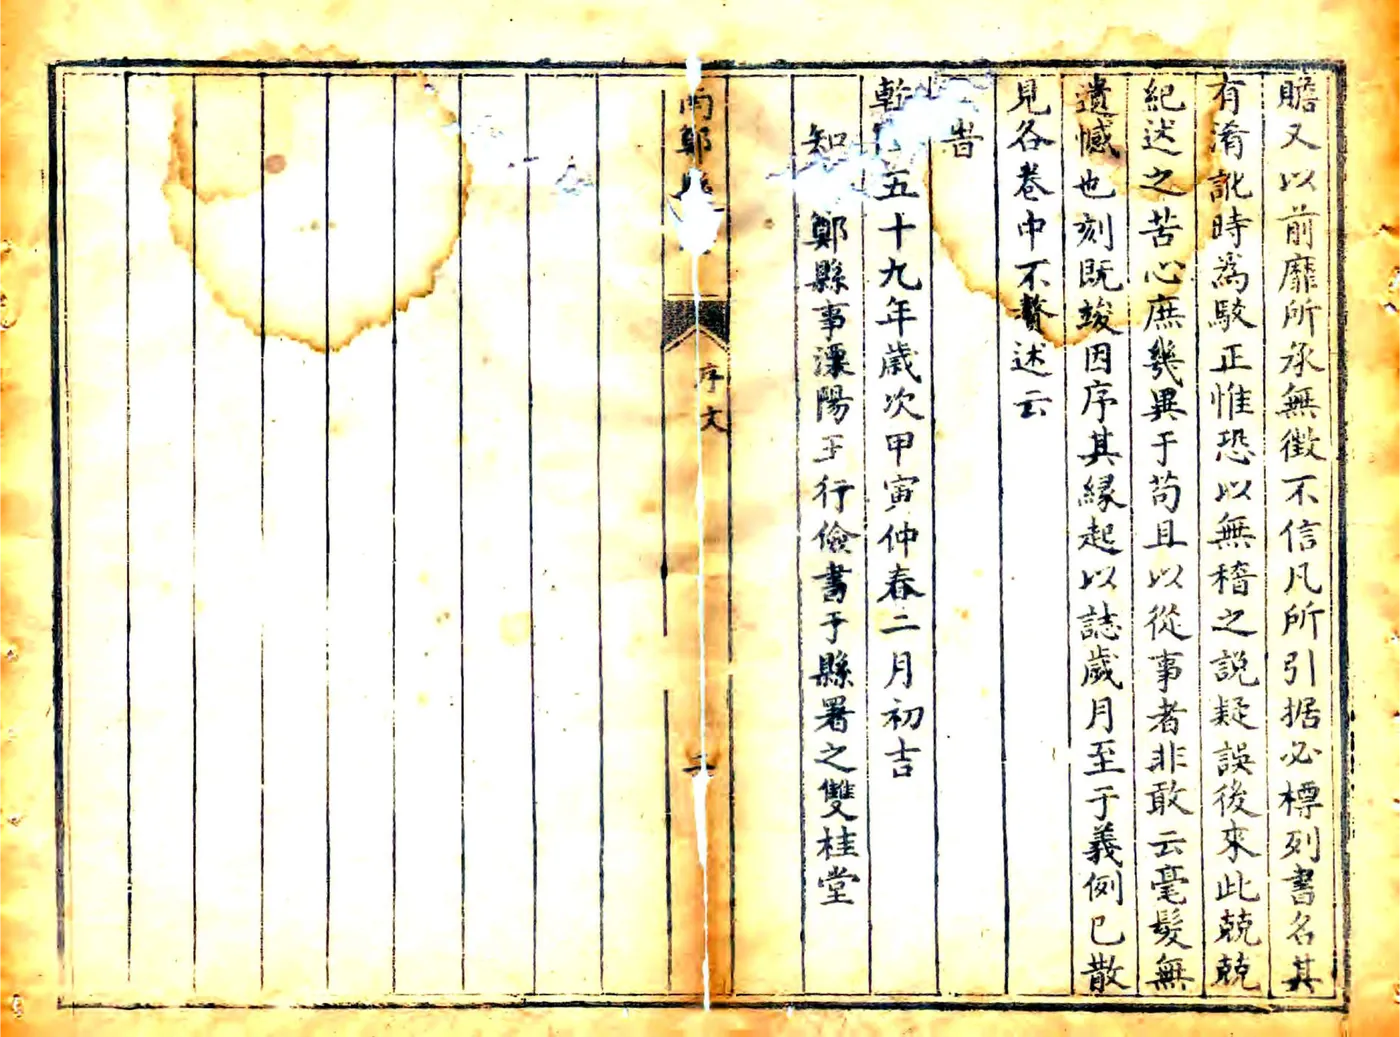 瞻又以前靡所承無徵不信凡所引据必標列書名其
有淆訛時為駁正惟恐以無稽之説疑誤後來此兢兢
紀述之苦心庶幾異于苟且以從事者非敢云毫髮無
遺憾也刻既竣因序其緣起以誌歲月至于義例已散
見各卷中不贅述云
旹
五十九年歲次甲寅仲春二月初吉
知 鄭縣事溧陽王行儉書于縣署之雙桂堂
南鄭縣
序文
二